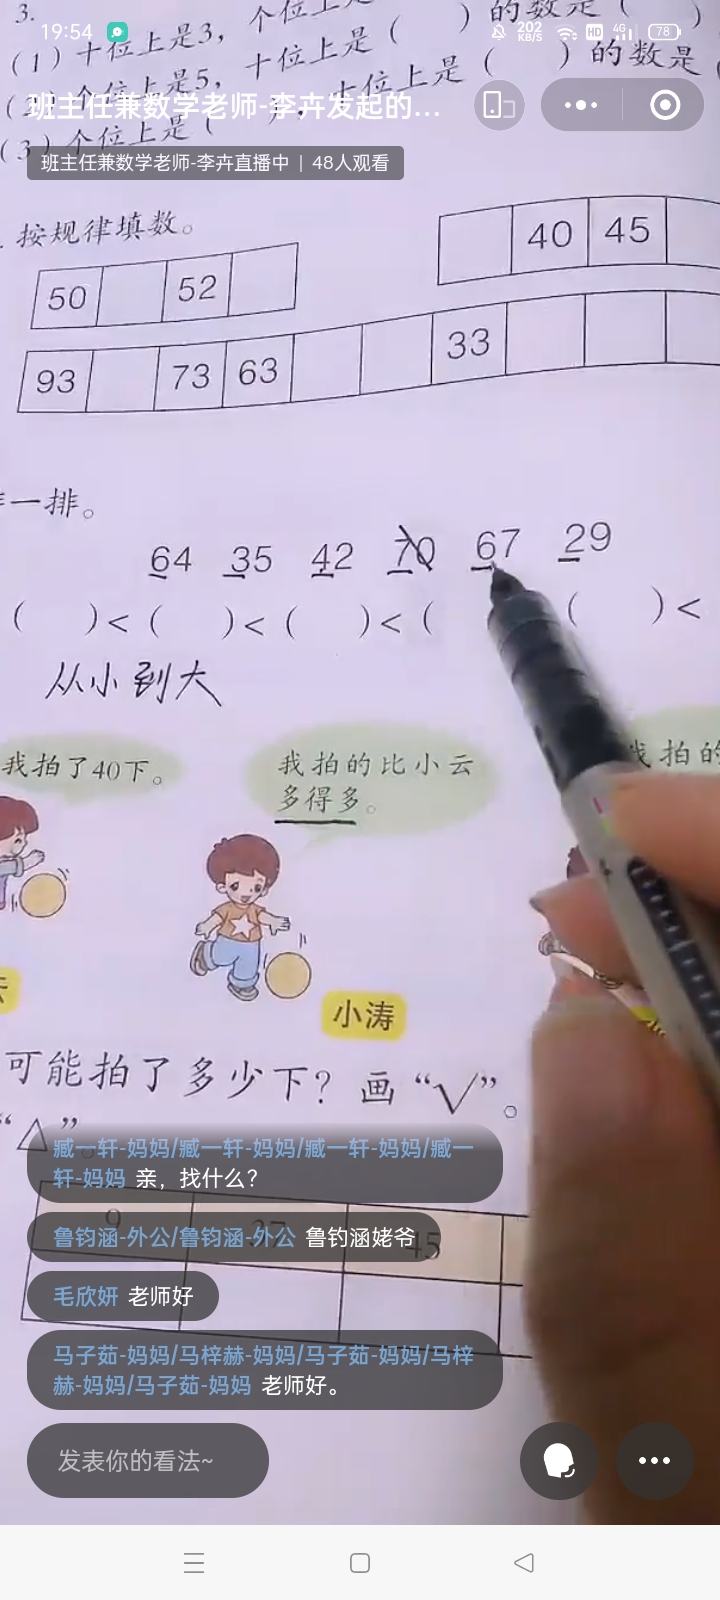 19:54
202 KB/S HD 4G 78
3.
个位上
(1)十位上是3,
(  )的数是(  )
个位上是5,十位上是(  )的数是(
(3)个位上是(
十位上是(
班主任兼数学老师-李卉发起的...
班主任兼数学老师-李卉直播中 | 48人观看
按规律填数。
50 52
40 45
93 73 63 33
一排。
64 35 42 70 67 29
(  )<(  )<(  )<(  (  )<
从小到大
我拍了40下。
我拍的比小云
多得多。
我拍的
小涛
可能拍了多少下?画“√”。
“△”。
9 37 45
臧一轩-妈妈/臧一轩-妈妈/臧一轩-妈妈/臧一
轩-妈妈 亲,找什么?
鲁钧涵-外公/鲁钧涵-外公 鲁钧涵姥爷
毛欣妍 老师好
马子茹-妈妈/马梓赫-妈妈/马子茹-妈妈/马梓
赫-妈妈/马子茹-妈妈 老师好。
发表你的看法~